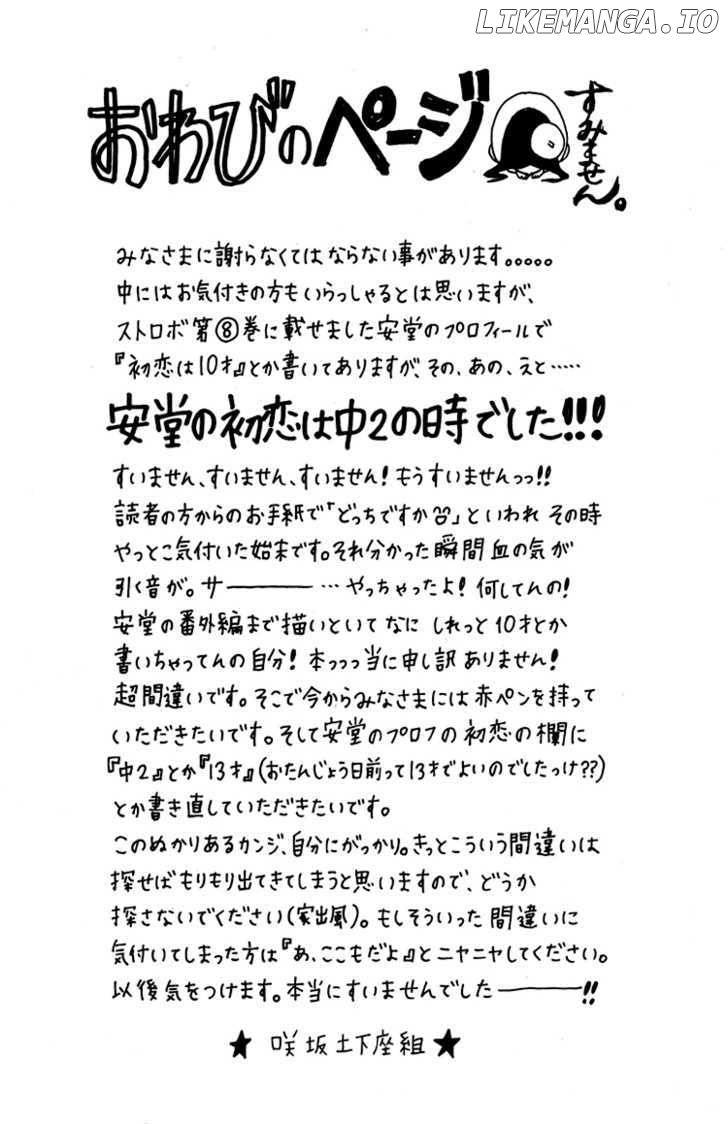 LIKEMANGA.IO
おわびのページ
すみません。
みなさまに謝らなくてはならない事があります。。。。。
中にはお気付きの方もいらっしゃるとは思いますが、
ストロボ第⑧巻に載せました安堂のプロフィールで
『初恋は10才』とか書いてありますが、その、あの、えと……
安堂の初恋は中2の時でした!!!
すいません、すいません、すいません!もうすいませんっっ!!
読者の方からのお手紙で「どっちですか」といわれ その時
やっとこ気付いた始末です。それ分かった瞬間血の気が
引く音が。サ────…やっちゃったよ!何してんの!
安堂の番外編まで描いといて なに しれっと10才とか
書いちゃってんの自分!本っっっ当に申し訳ありません!
超間違いです。そこで今からみなさまには赤ペンを持って
いただきたいです。そして安堂のプロフの初恋の欄に
『中2』とか『13才』(おたんじょう日前って13才でよいのでしたっけ??)
とか書き直していただきたいです。
このぬかりあるカンジ、自分にがっかり。きっとこういう間違いは
探せばもりもり出てきてしまうと思いますので、どうか
探さないでください(家出風)。もしそういった間違いに
気付いてしまった方は『あ、ここもだよ』とニヤニヤしてください。
以後気をつけます。本当にすいませんでした────!!
★ 咲坂土下座組 ★